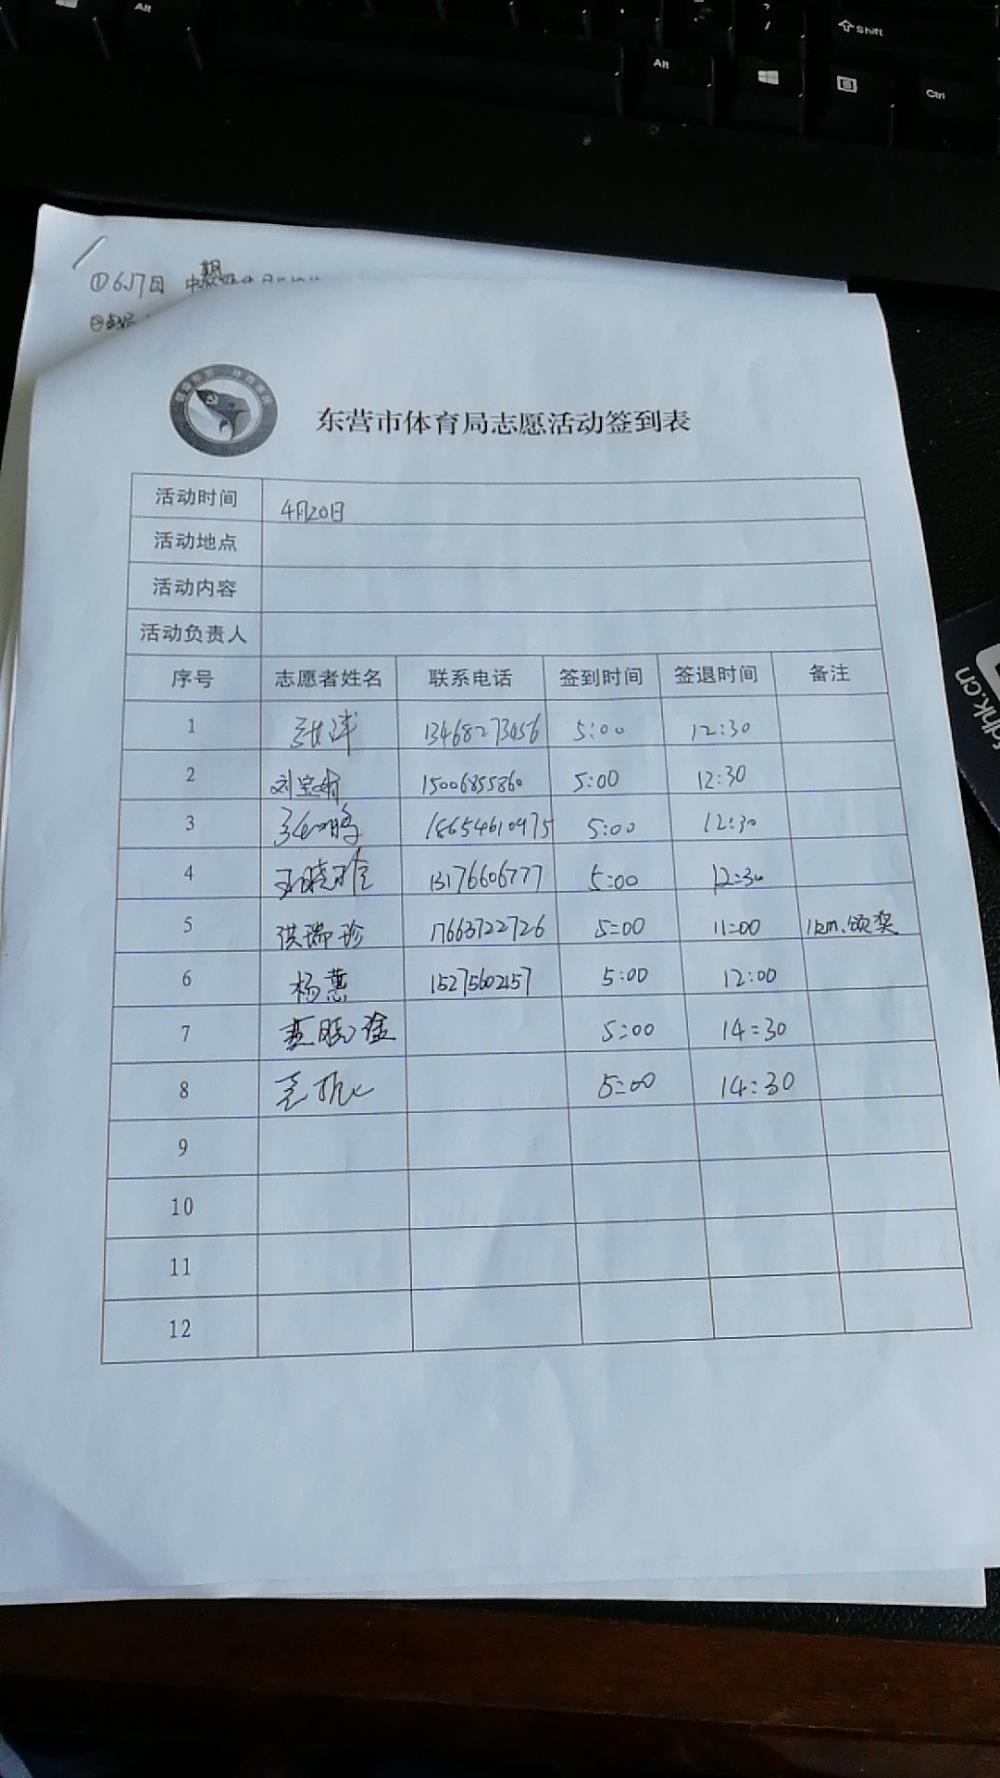 Alt
Shift
Alt
Ctrl
①6月17日
东营市体育局志愿活动签到表
活动时间 4月20日
活动地点
活动内容
活动负责人
序号 志愿者姓名 联系电话 签到时间 签退时间 备注
1 13468273456 5:00 12:30
2 刘宝娟 15006855860 5:00 12:30
3 18654610975 5:00 12:30
4 13176606777 5:00 12:30
5 洪瑞珍 17663722726 5:00 11:00 1km.颁奖
6 杨慧 15275602157 5:00 12:00
7 5:00 14:30
8 5:00 14:30
9
10
11
12
dhk.cn